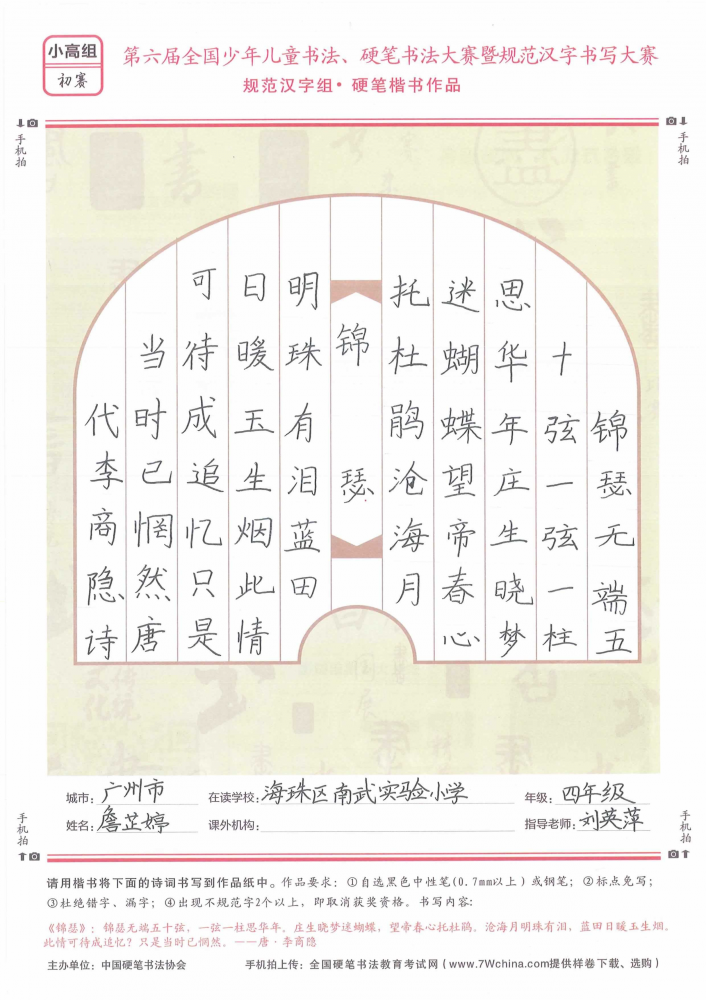 小高组
初赛
第六届全国少年儿童书法、硬笔书法大赛暨规范汉字书写大赛
规范汉字组·硬笔楷书作品
手机拍
手机拍
锦瑟无端五
十弦一弦一柱
思华年庄生晓梦
迷蝴蝶望帝春心
托杜鹃沧海月
锦瑟
明珠有泪蓝田
日暖玉生烟此情
可待成追忆只是
当时已惘然唐
代李商隐诗
城市：广州市 在读学校：海珠区南武实验小学 年级：四年级
姓名：詹芷婷 课外机构： 指导老师：刘英萍
手机拍
手机拍
请用楷书将下面的诗词书写到作品纸中。作品要求：①自选黑色中性笔(0.7mm以上)或钢笔；②标点免写；
③杜绝错字、漏字；④出现不规范字2个以上，即取消获奖资格。书写内容：
《锦瑟》：锦瑟无端五十弦，一弦一柱思华年。庄生晓梦迷蝴蝶，望帝春心托杜鹃。沧海月明珠有泪，蓝田日暖玉生烟。
此情可待成追忆？只是当时已惘然。——唐·李商隐
主办单位：中国硬笔书法协会 手机拍上传：全国硬笔书法教育考试网（www.7Wchina.com提供样卷下载、选购）